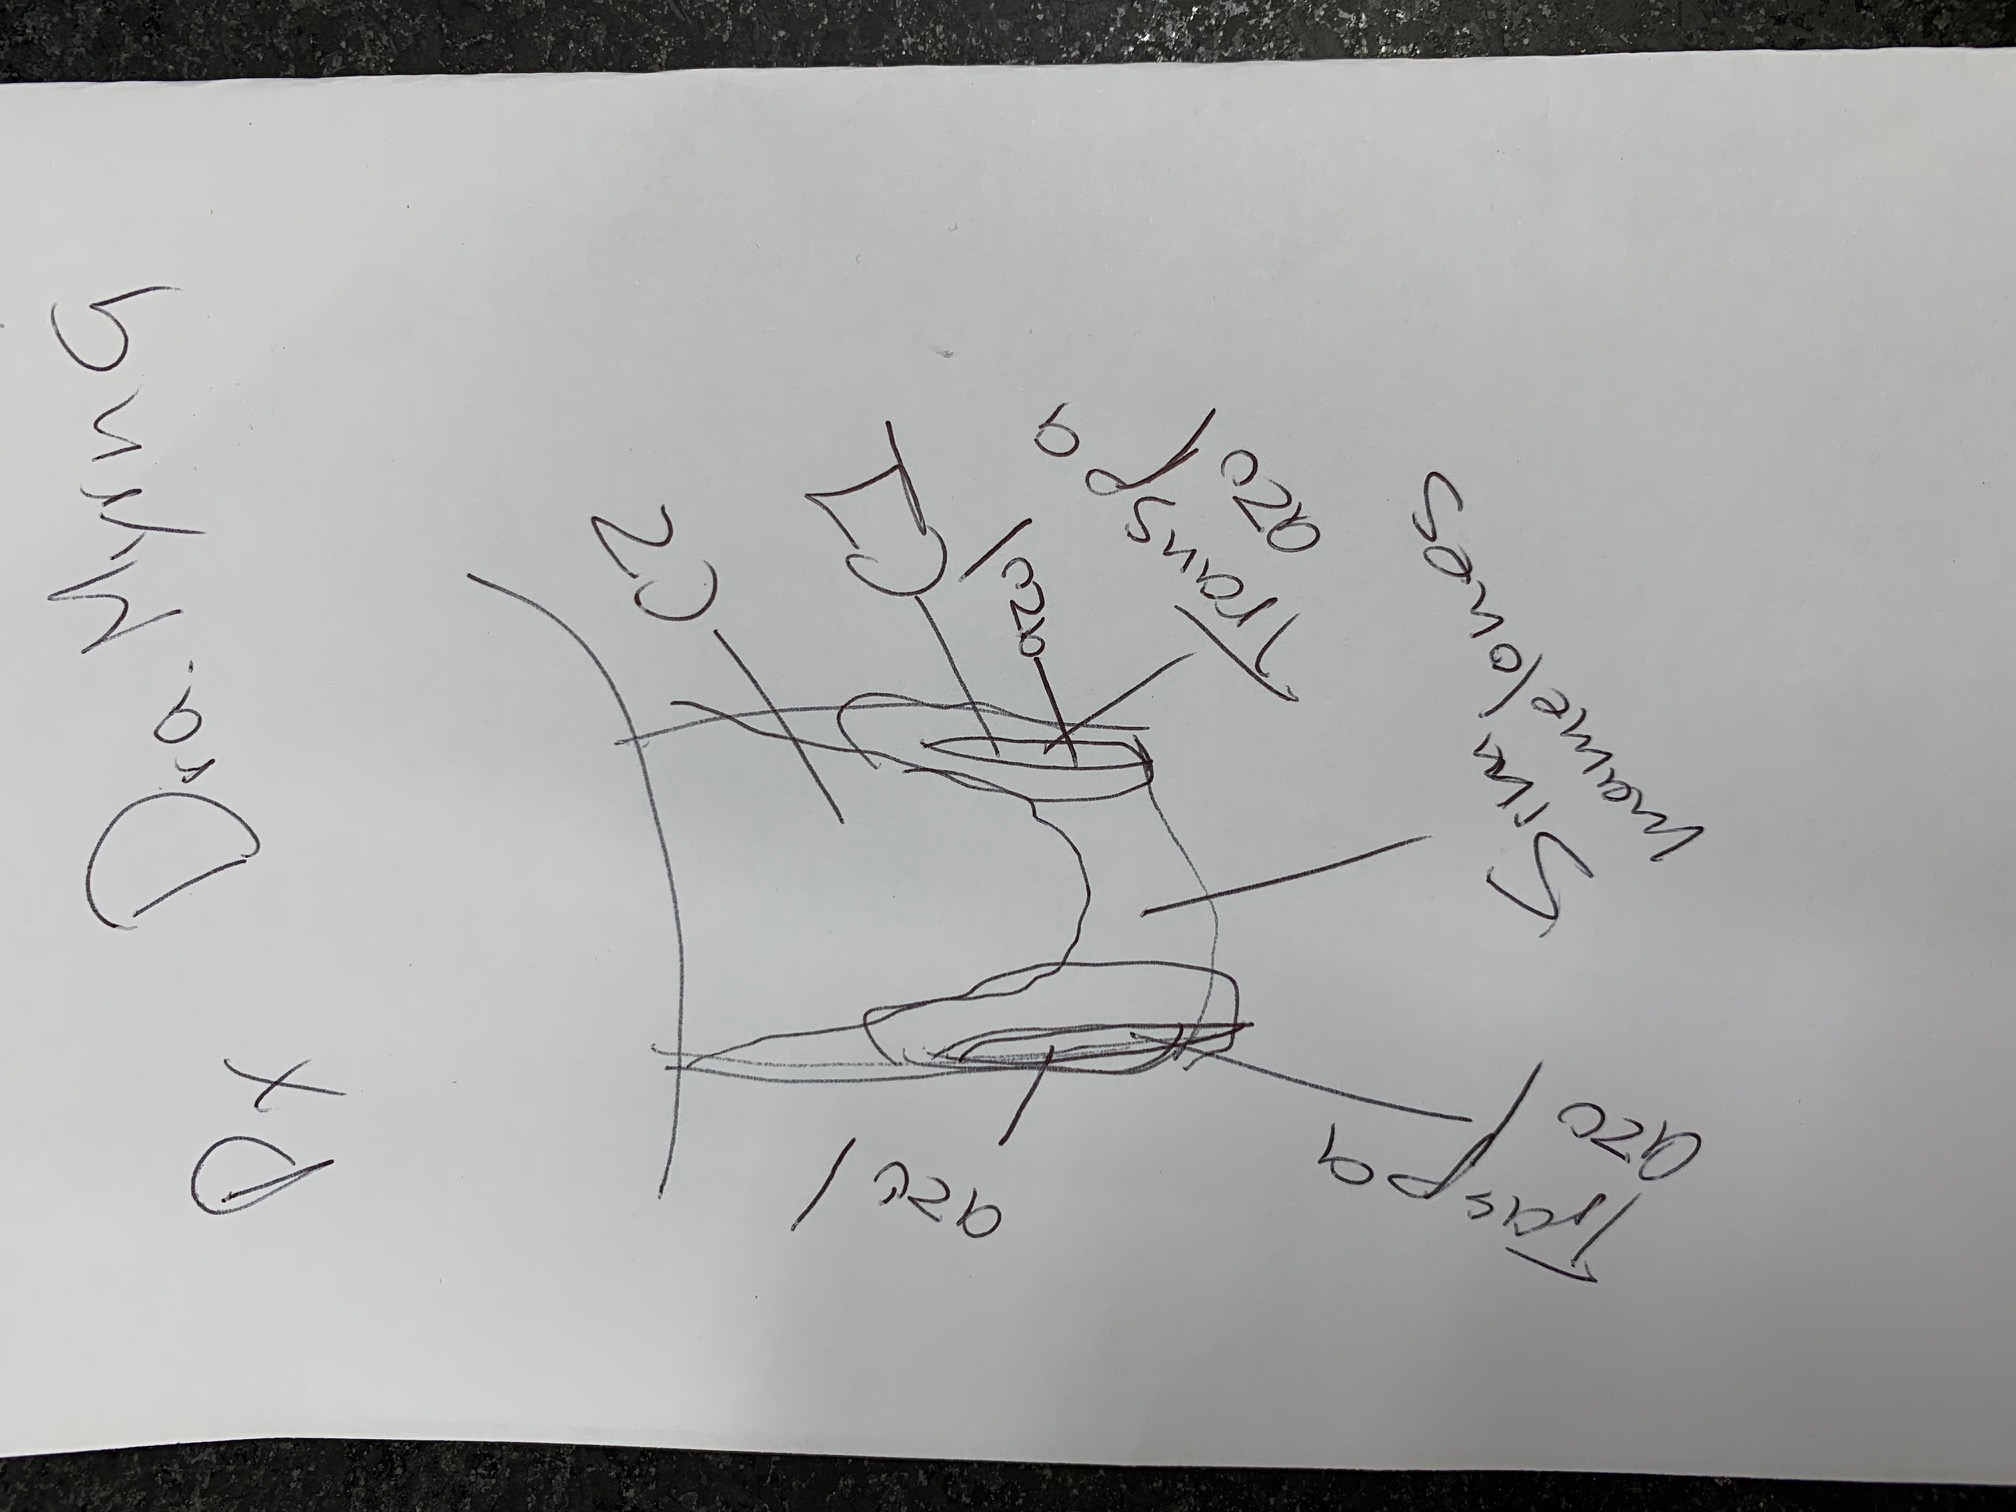 Px Dra. Myrna
C2
azul
C1
azul
Transpa
azul
Traspa
azul
Sin
mamelones